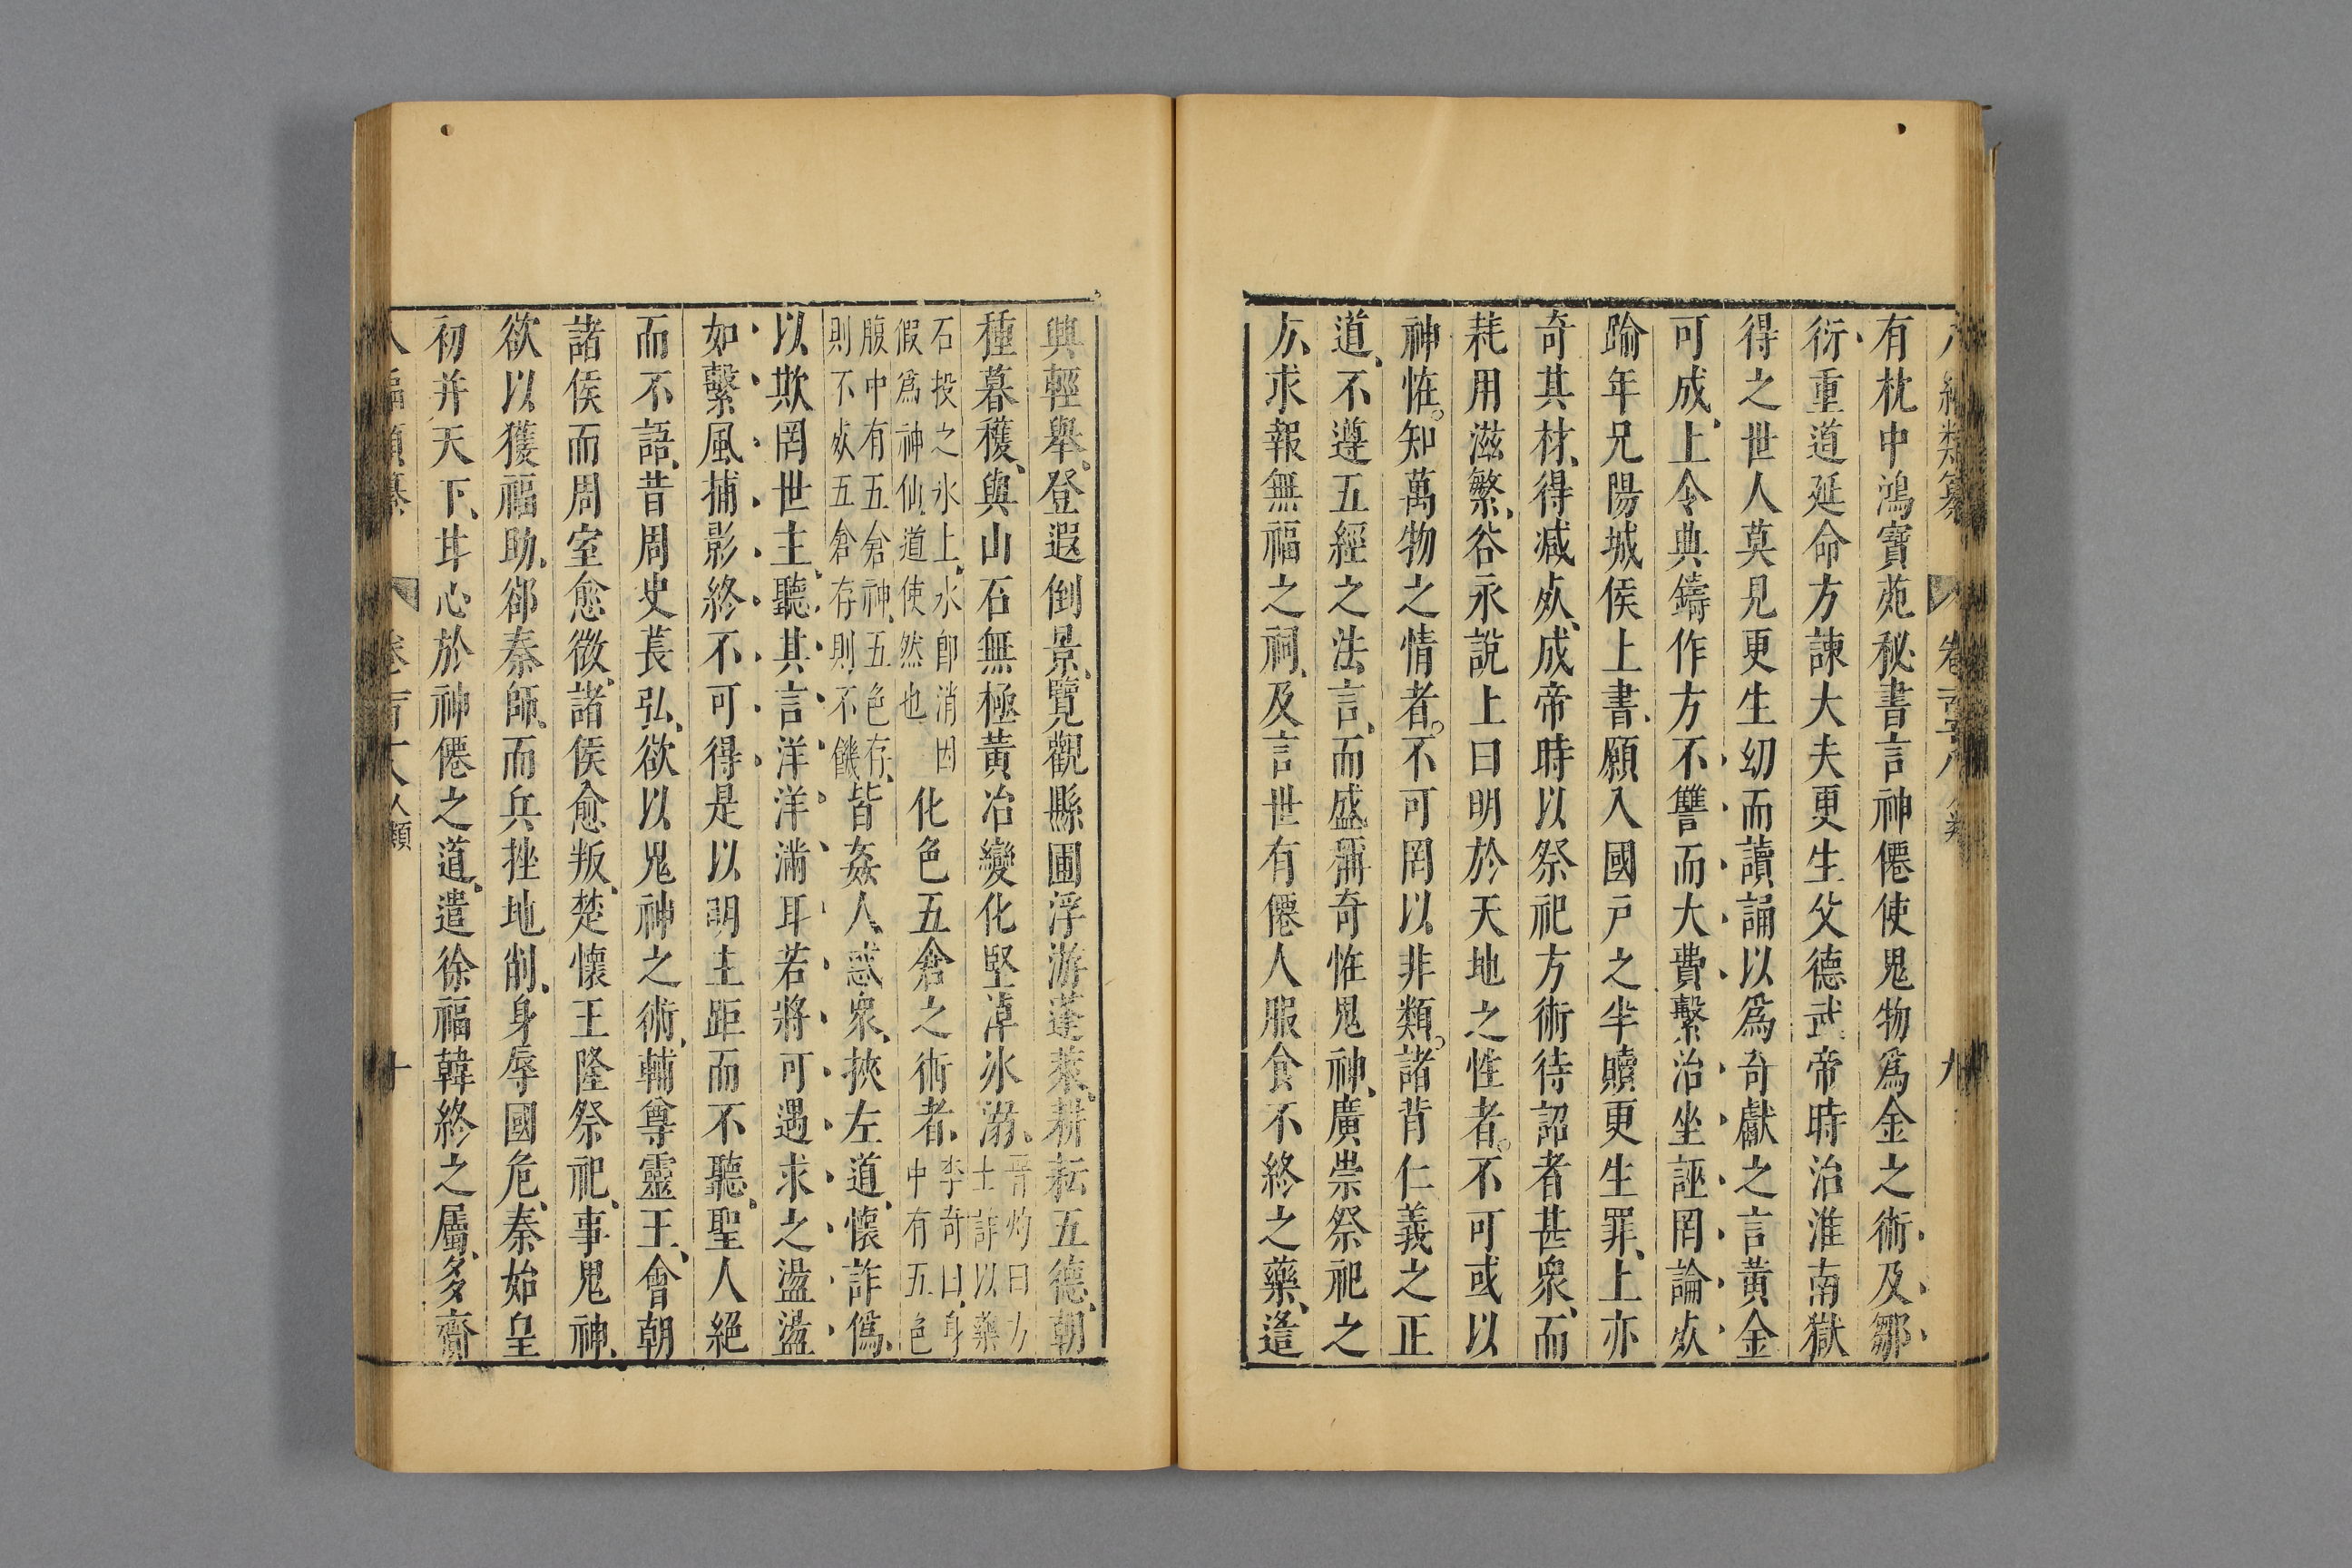 有枕中鴻寶苑秘書言神僊使鬼物爲金之術及鄒
衍重道延命方諫大夫更生父德武帝時治淮南獄
得之世人莫見更生幼而讀誦以爲奇獻之言黃金
可成上令典鑄作方不讐而大費繫治坐誣罔論死
踰年兄陽城侯上書願入國戸之半贖更生罪上亦
奇其材得减死成帝時以祭祀方術待詔者甚衆而
耗用滋繁谷永說上曰明於天地之性者不可或以
神恠知萬物之情者不可罔以非類諸背仁義之正
道不遵五經之法言而盛稱奇恠鬼神廣崇祭祀之
方求報無福之祠及言世有僊人服食不終之藥遙
興輕舉登遐倒景覽觀縣圃浮游蓬萊耕耘五德朝
種暮穫與山石無極黃冶變化堅冰淖溺晉灼曰方士詐以藥
石投之氷上氷卽消因假爲神仙道使然也化色五倉之術者李奇曰身中有五色
腹中有五倉神五色存則不死五倉存則不饑皆姦人惑衆挾左道懷詐僞
以欺罔世主聽其言洋洋滿耳若將可遇求之盪盪
如繫風捕影終不可得是以明主距而不聽聖人絕
而不語昔周史萇弘欲以鬼神之術輔尊靈王會朝
諸侯而周室愈微諸侯愈叛楚懷王隆祭祀事鬼神
欲以獲福助郤秦師而兵挫地削身辱國危秦始皇
初并天下甘心於神僊之道遣徐福韓終之屬多齎
人類
十